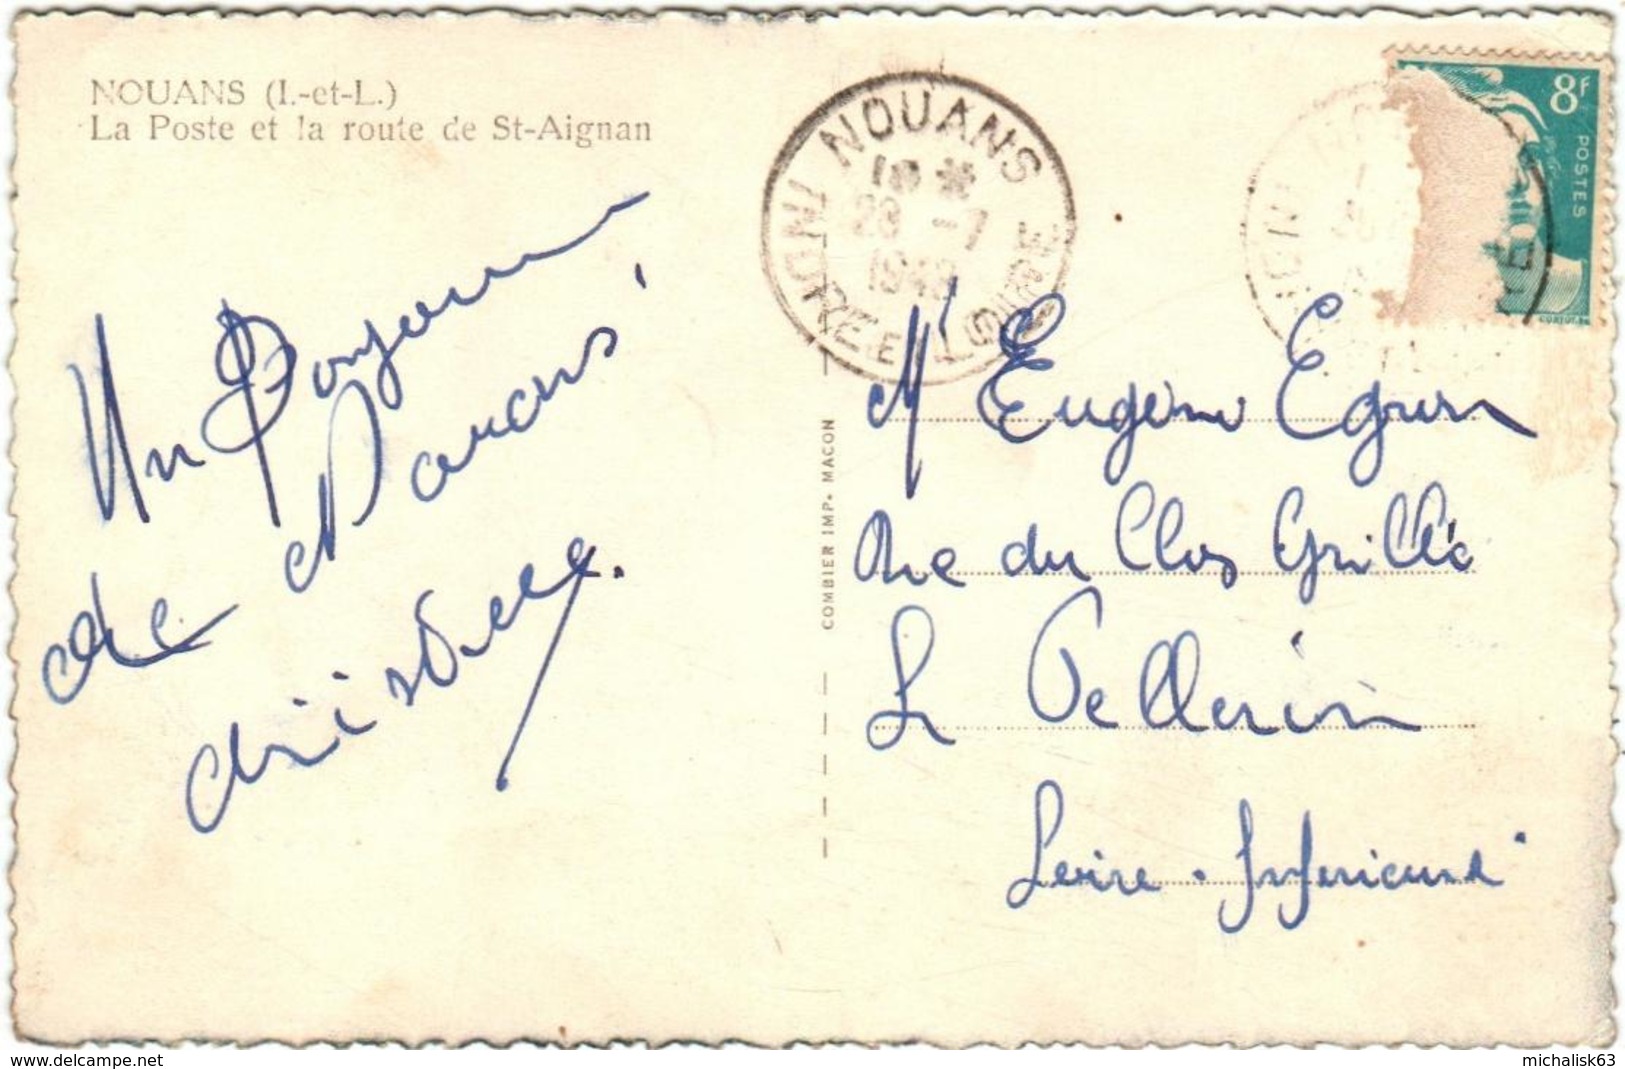 NOUANS (I.-et-L.)
La Poste et la route de St-Aignan
Un Bonjour
de Nouans,
NOUANS
INDRE ET LOIRE
18 *
28 -7
1948
8F
POSTES
COMBIER IMP. MACON
Mr Eugène
Rue du Clos Grillé
Le Pellerin
Loire - Inférieure
www.delcampe.net
michalisk63